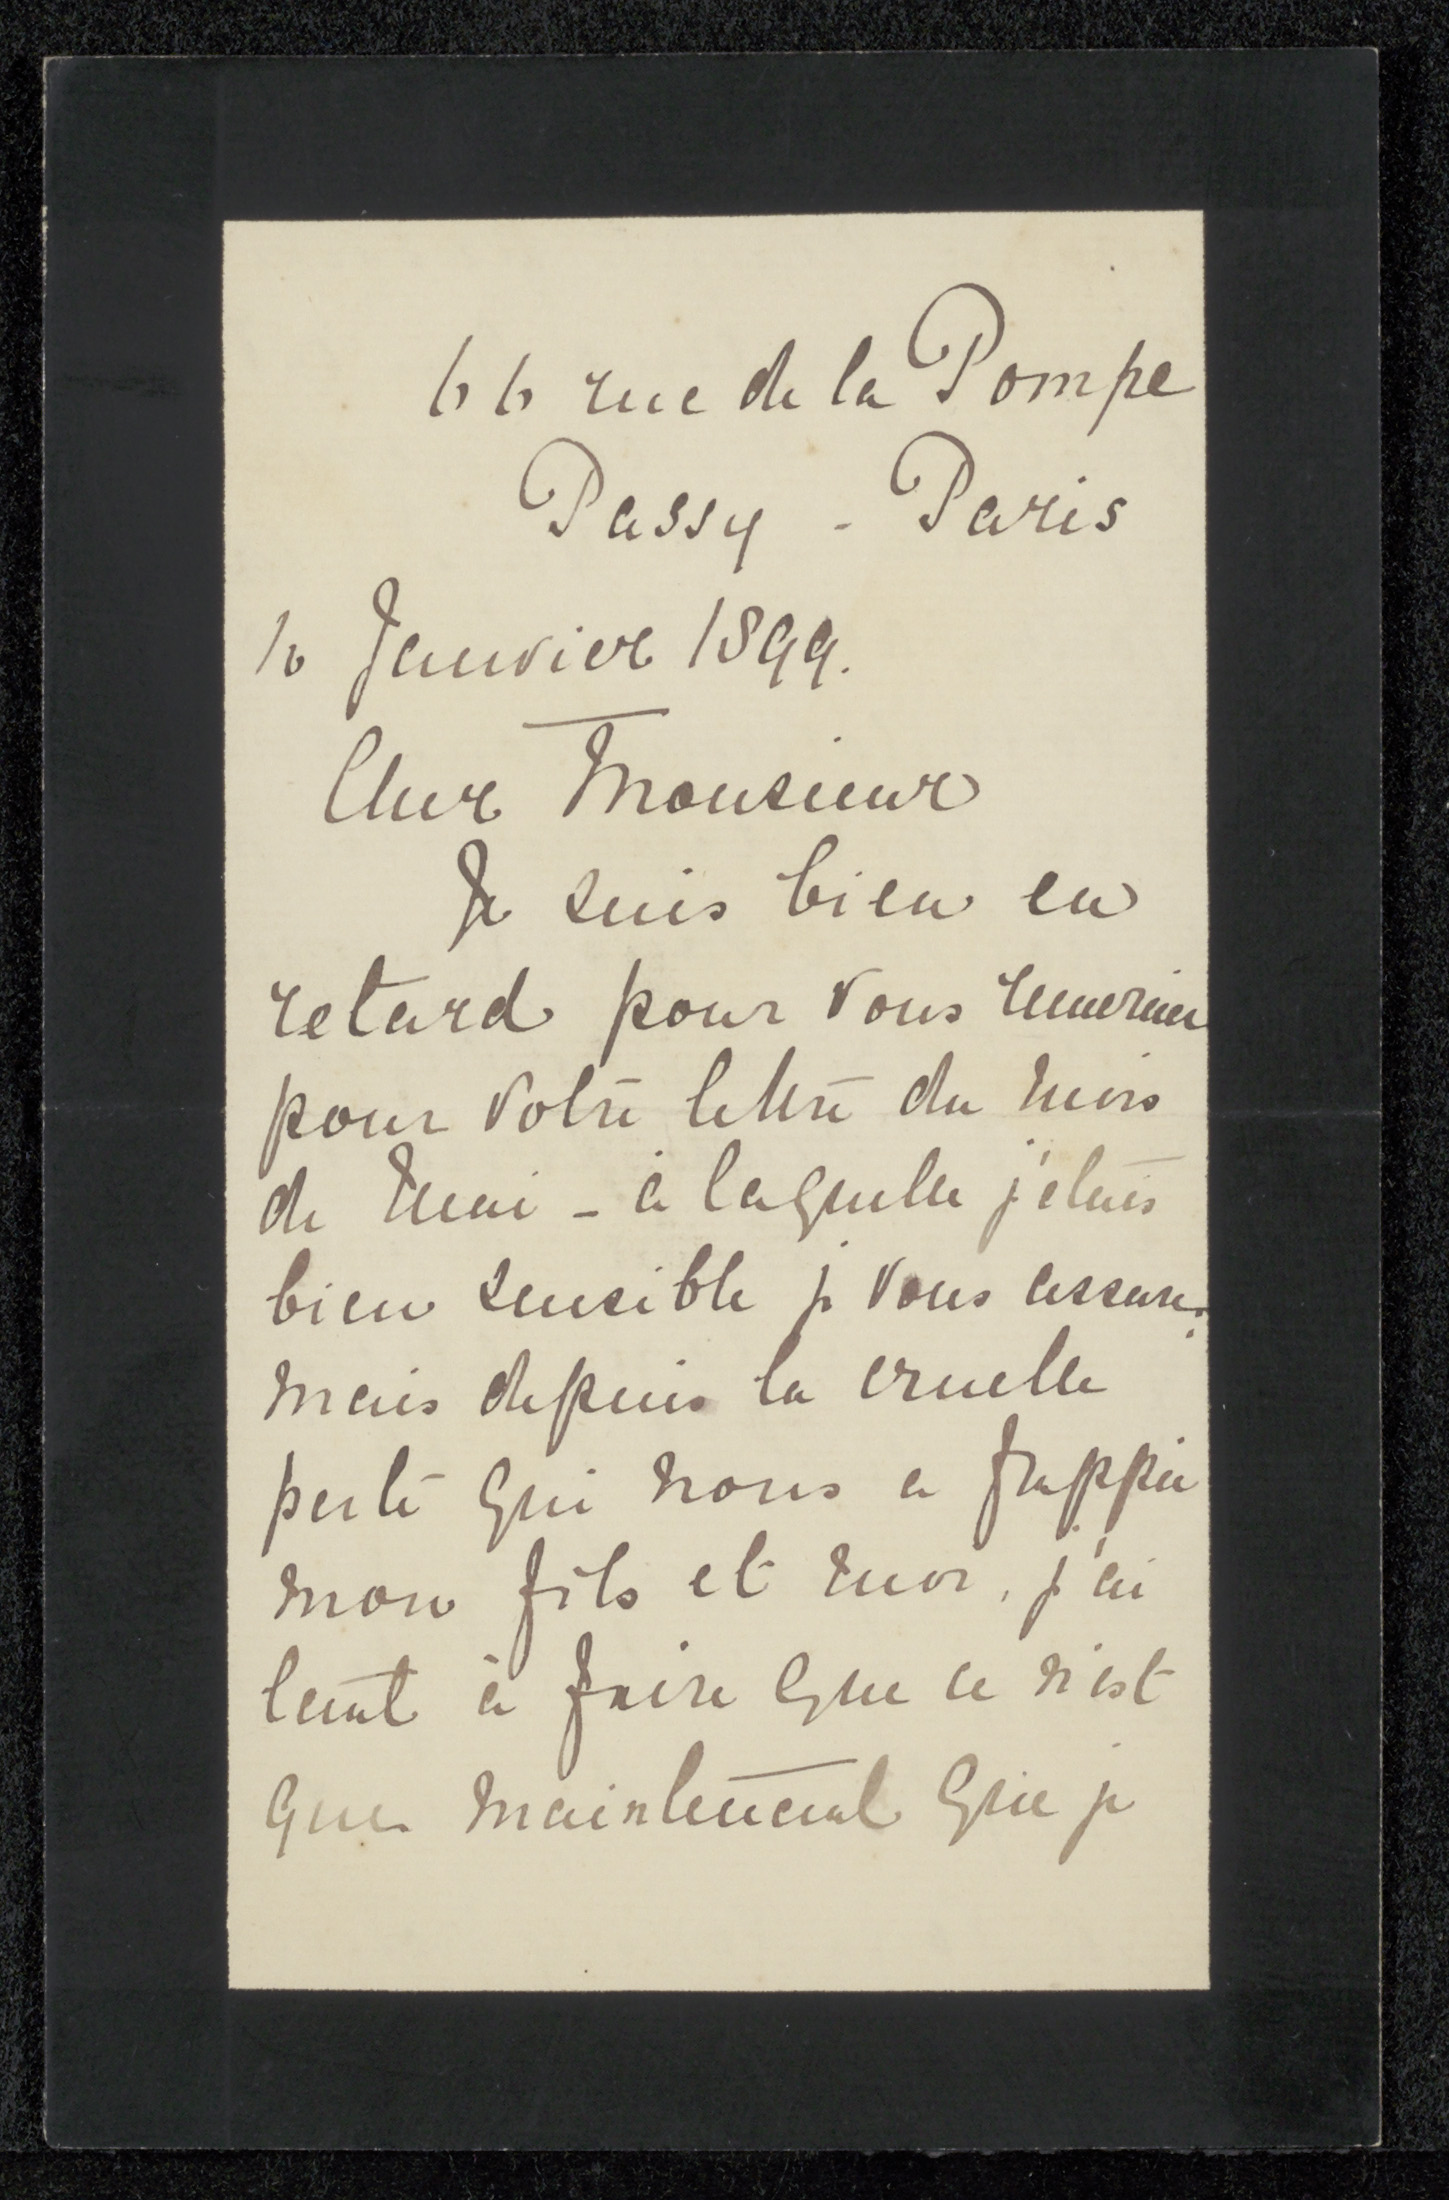 66 rue de la Pompe
Passy - Paris
10 Janvier 1899.
Cher Monsieur
Je suis bien en
retard pour vous remercier
pour votre lettre du mois
de Mai - à laquelle j'étais
bien sensible je vous assure.
mais depuis la cruelle
perte qui nous a frappée
mon fils et moi, j'ai
tant à faire que ce n'est
que maintenant que je